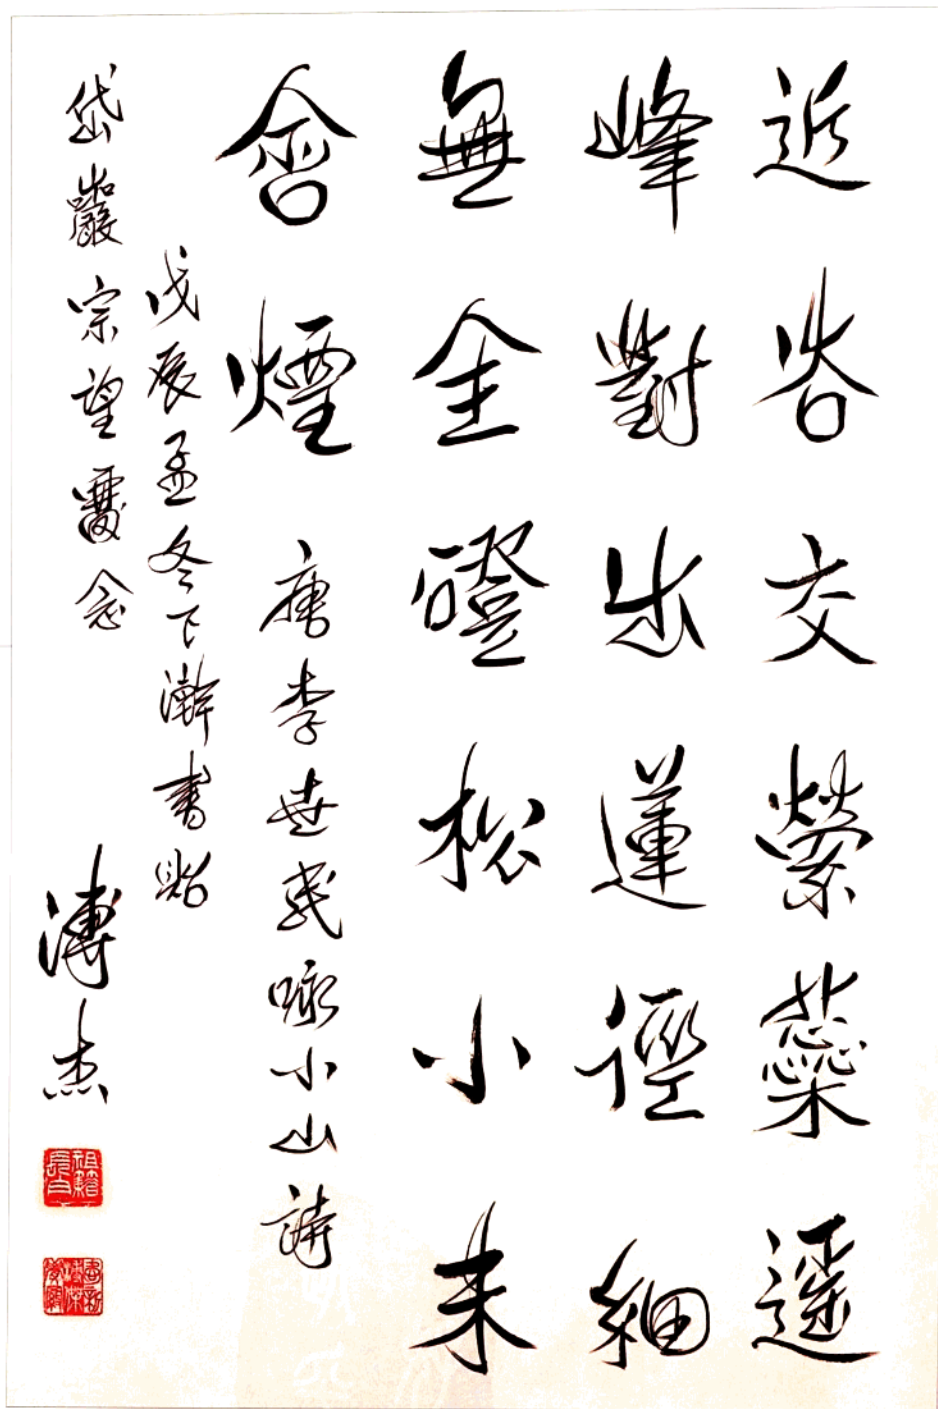 近谷交縈蘂遥
峰對出蓮徑細
無全磴松小未
含煙 唐李世民咏小山詩
戊辰孟冬下澣書貽
岱巖宗望念
溥杰
祖籍長白